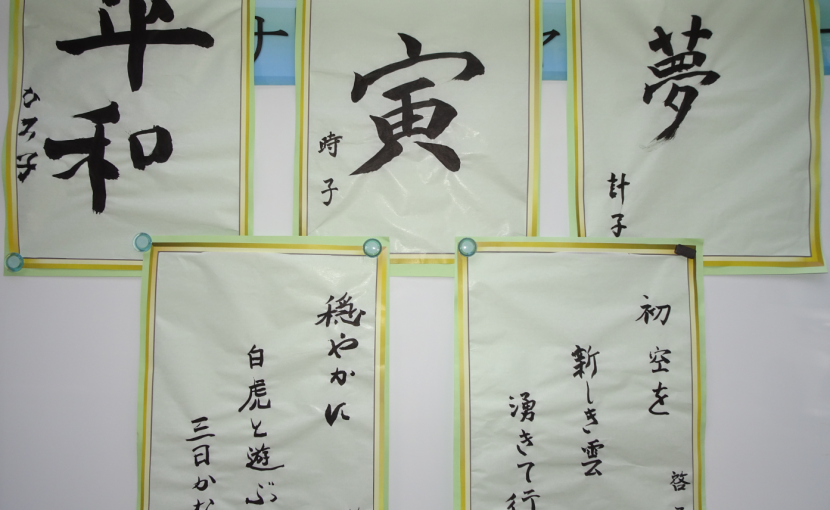 平和
ひろ子
寅
時子
夢
計子
穏やかに
白虎と遊ぶ
三日かな
初空を
新しき雲
湧きて行
啓